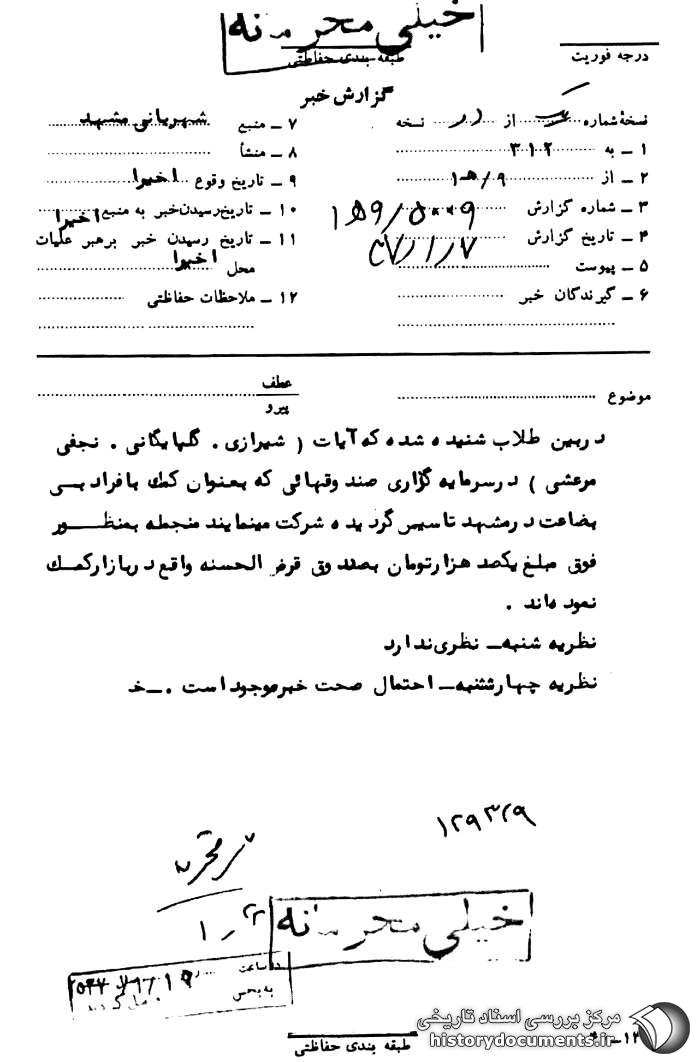 خیلی محرمانه
طبقه بندی حفاظتی
درجه فوریت
گزارش خبر
نسخهٔ شماره از نسخه
۱ ـ به ۳۱۲
۲ ـ از ۹/ه۱
۳ ـ شماره گزارش
۴ ـ تاریخ گزارش
۵ ـ پیوست
۶ ـ گیرندگان خبر
۷ ـ منبع شهربانی مشهد
۸ ـ منشأ
۹ ـ تاریخ وقوع اخیرا
۱۰ ـ تاریخ رسیدن خبر به منبع اخیرا
۱۱ ـ تاریخ رسیدن خبر برهبر عملیات
محل اخیرا
۱۲ ـ ملاحظات حفاظتی
موضوع
عطف
پیرو
دربین طلاب شنیده شده که آیات ( شیرازی . گلپایگانی . نجفی
مرعشی ) درسرمایه گزاری صندوقهائی که بعنوان کمک بافراد بی
بضاعت درمشهد تاسیس گردیده شرکت مینمایند منجمله بمنظور
فوق مبلغ یکصد هزارتومان بصندوق قرض الحسنه واقع دربازار کمک
نموده اند .
نظریه شنبه ـ نظری ندارد
نظریه چهارشنبه ـ احتمال صحت خبرموجود است . ـ خ
۱۲۹۳۲۹
خیلی محرمانه
ساعت
به بخش
طبقه بندی حفاظتی
مرکز بررسی اسناد تاریخی
historydocuments.ir